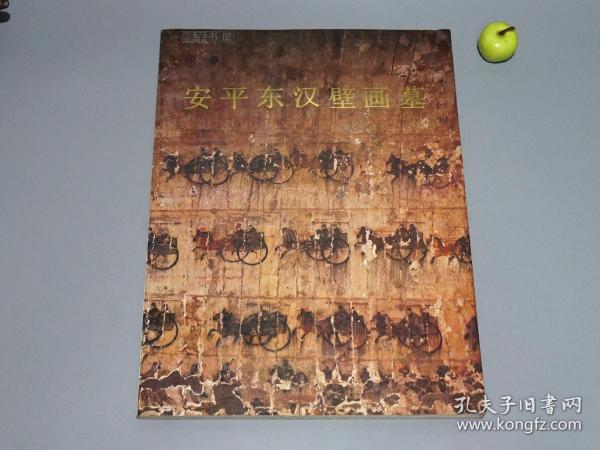 安平东汉壁画墓
孔夫子旧書网
www.kongfz.com